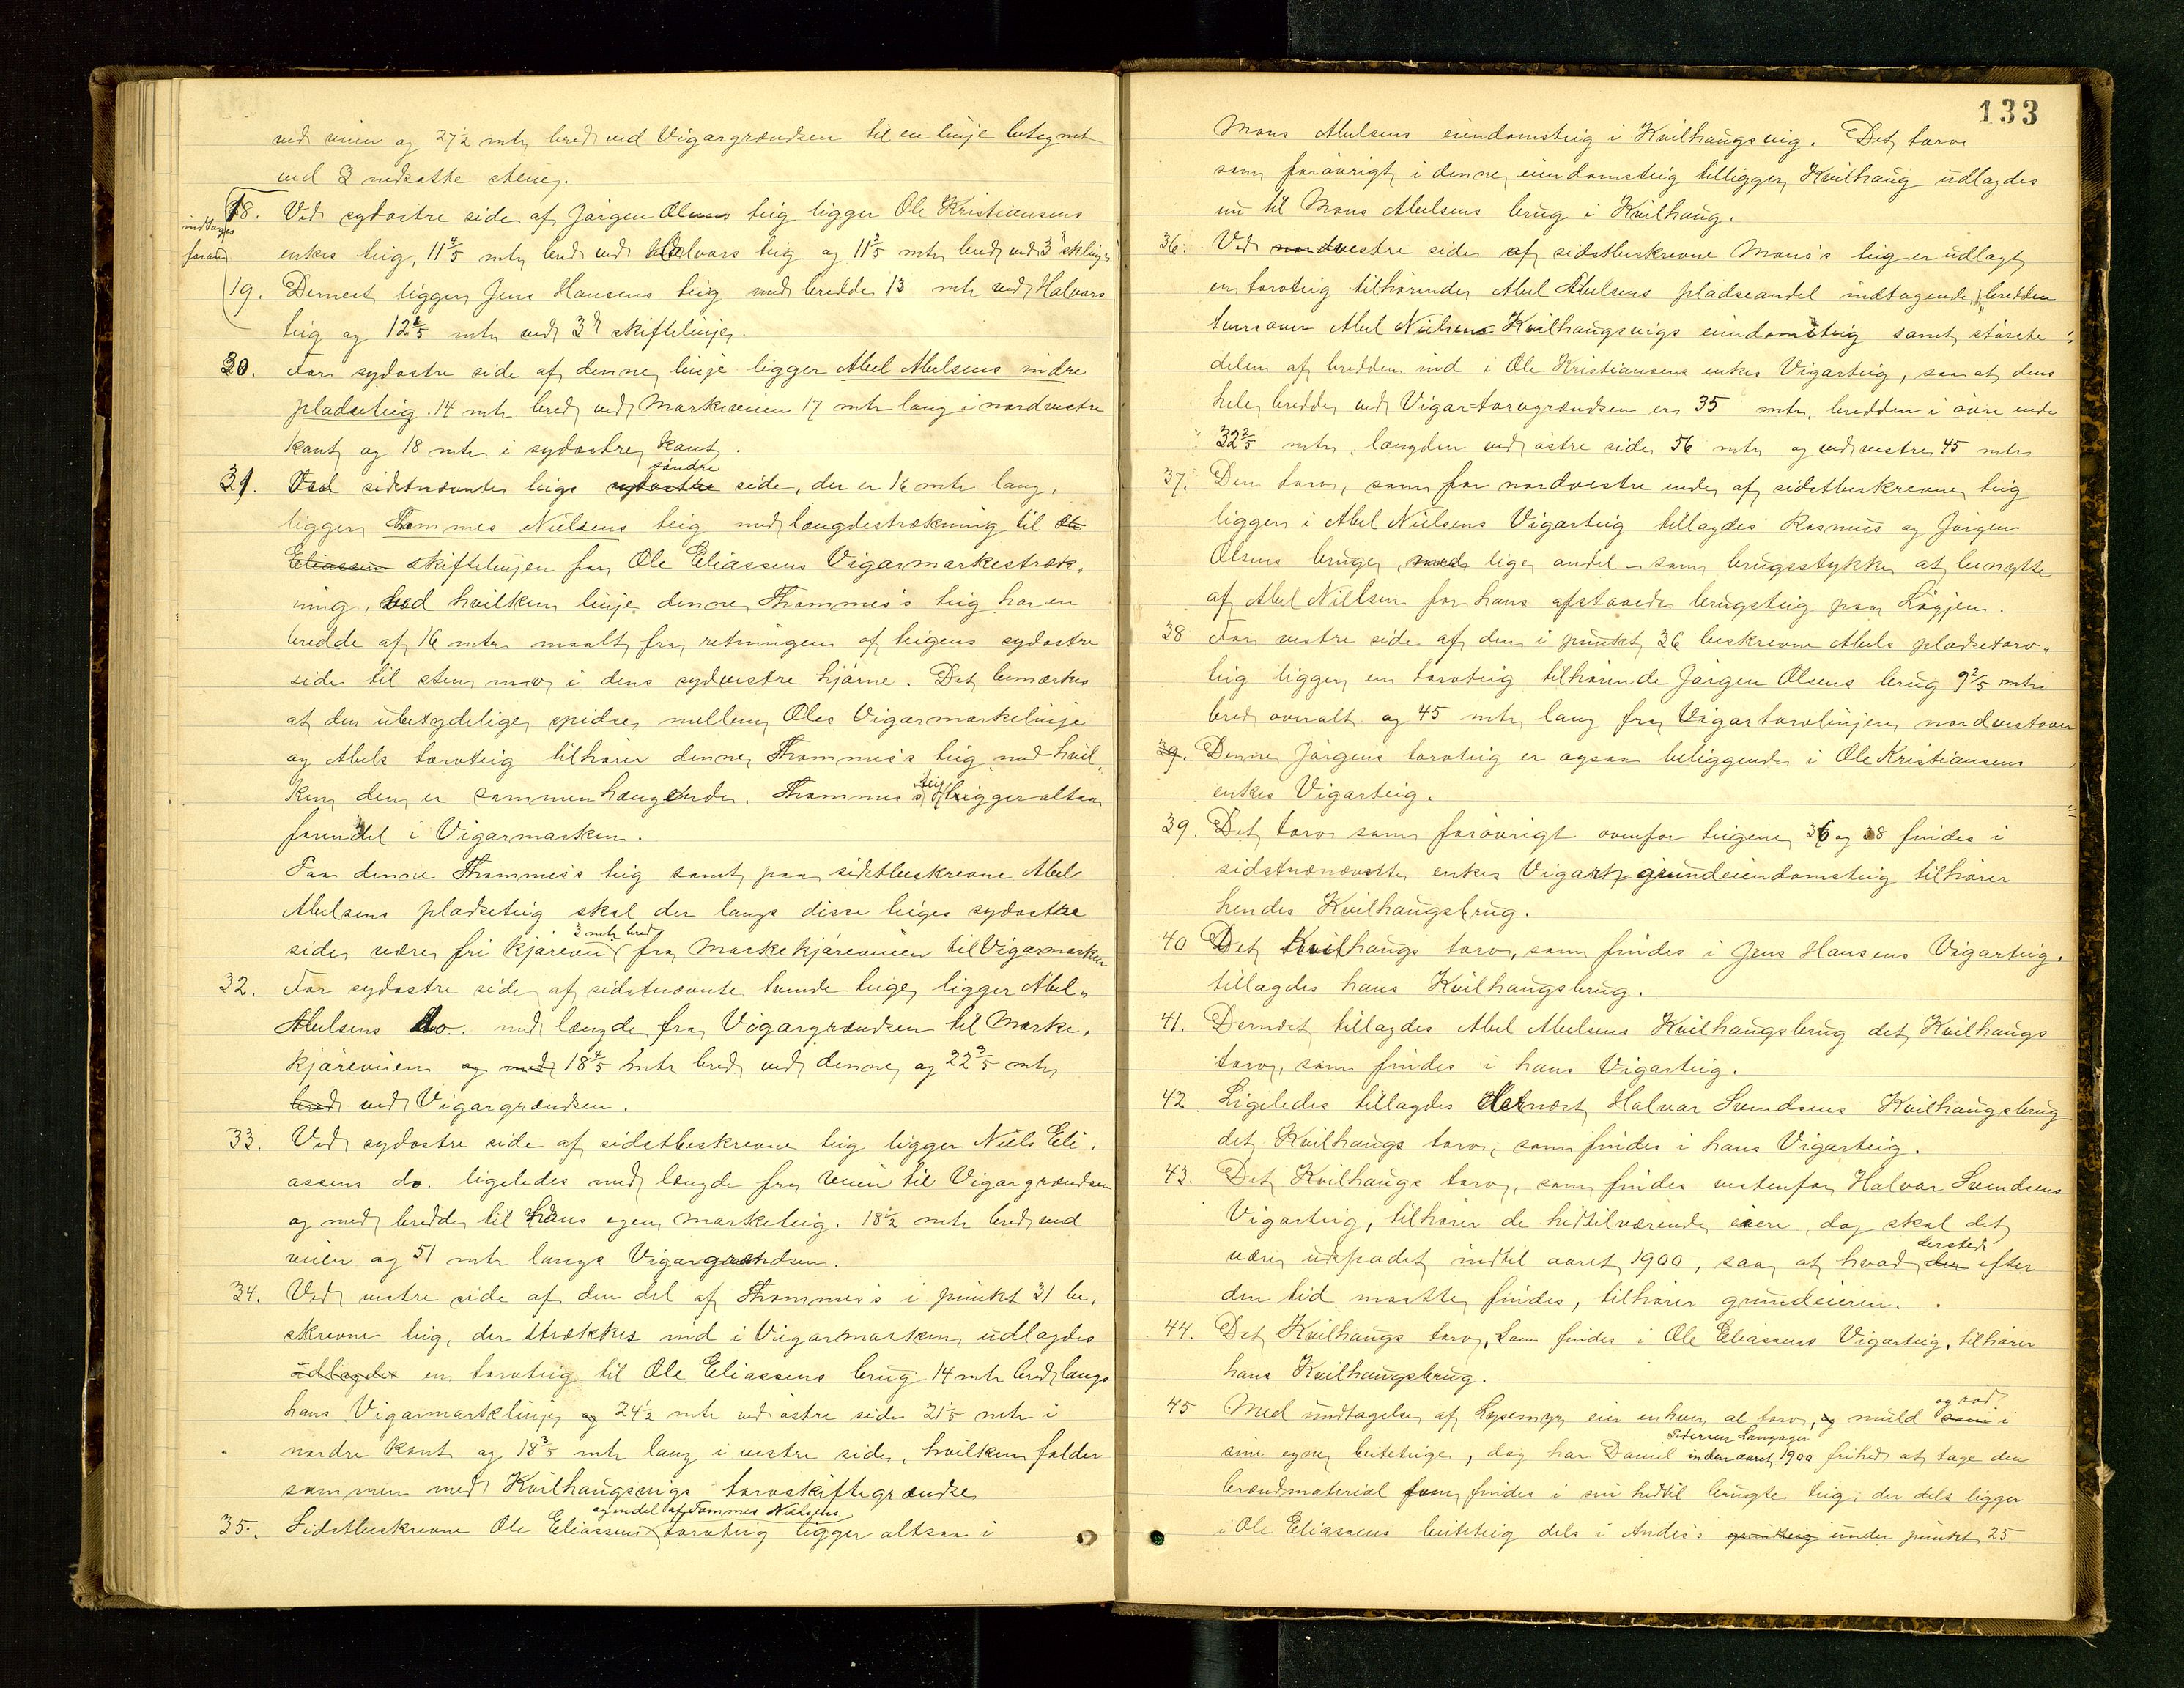 ved veien og 27½ mtr bred ved Vigargrændsen til en linje betegnet
ved 3 nedsatte stene.
18. Ved sydostre side af Jørgen Olsens teig ligger Ole Kristiansens
indtages
foran
enkes teig, 11 4/5 mtr bred ved Halvors teig og 11 3/5 mtr bred ved 3die skiftelinje
19. Dernest ligger Jens Hansens teig med bredde 13 mtr ved Halvors
teig og 12 2/5 mtr ved 3die skiftelinje.
30. For sydostre side af denne linje ligger Abel Abelsens indre
pladseteig. 14 mtr bred ved Markeveien 17 mtr lang i nordvestre
kant og 18 mtr i sydostre kant.
søndre
31. Ved sidstnævnte teigs sydostre side, der er 16 mtr lang,
ligger Thommes Nielsens teig med længdestrækning til Ole
Eliassens skiftelinjen for Ole Eliassens Vigarmarkestræk-
ning, ved hvilken linje denne Thommes's teig har en
bredde af 16 mtr maalt fra retningen af teigens sydostre
side til sten no 2 i dens sydvestre hjørne. Det bemærkes
at den ubetydelige spidse mellem Oles Vigarmarkelinje
og Abels torvteig tilhører denne Thommes's teig med hvil-
teig
ken den er sammenhængende. Thommes's ligger altsaa
forendel i Vigarmarken.
Paa denne Thommes's teig samt paa sidstbeskrevne Abel
Abelsens pladseteig skal der langs disse teiges sydostre
3 mtr bred
side være fri kjørevei fra Markekjøreveien til Vigarmarken
32. For sydostre side af sidstnævnte tvende teige ligger Abel
Abelsens do. med længde fra Vigargrændsen til Marke-
kjøreveien og med 18 4/5 mtr bred ved denne og 22 3/5 mtr
bred ved Vigargrændsen.
33. Ved sydostre side af sidstbeskrevne teig ligger Niels Eli-
assens do. ligeledes med længde fra veien til Vigargrændsen
og med bredde til hans egen marketeig. 18½ mtr bred ved
veien og 51 mtr langs Vigargrændsen.
34. Ved vestre side af den del af Thommes's i punkt 31 be-
skrevne teig, der strækkes ind i Vigarmarken udlagdes
udlagdes en torvteig til Ole Eliassens brug 14 mtr bred langs
hans Vigarmarkelinje og 24½ mtr ved østre side 21 1/5 mtr i
nordre kant og 18 3/5 mtr lang i vestre side, hvilken falder
sammen med Kvilhaugsvigs torvskiftegrændse
og endel af Tommes Nielsens
35. Sidstbeskrevne Ole Eliassens torvteig ligger altsaa i
133
Mons Abelsens eiendomsteig i Kvilhaugsvig. Det torv
som forøvrigt i denne eiendomsteig tilligger Kvilhaug udlagdes
nu til Mons Abelsens brug i Kvilhaug.
36. Ved nordvestre side af sidstbeskrevne Mons's teig er udlagt
en torvteig tilhørende Abel Abelsens pladseandel indtagende i bredden
tversover Abel Nielsens Kvilhaugsvigs eiendomsteig samt største-
delen af bredden ind i Ole Kristiansens enkes Vigarteig, saa at dens
hele bredde ved Vigar-torvgrændsen er 35 mtr, bredden i øvre ende
32 2/5 mtr, længden ved østre side 56 mtr og ved vestre 45 mtr
37. Den torv, som for nordvestre ende af sidstbeskrevne teig
ligger i Abel Nielsens Vigarteig tillagdes Rasmus og Jørgen
Olsens bruge, med lige andel - som brugsstykke at benytte
af Abel Nielsen for hans afstaaede brugsteig paa Løgjen.
38 For vestre side af den i punkt 36 beskrevne Abels pladsetorv-
teig ligger en torvteig tilhørende Jørgen Olsens brug 9 2/5 mtr
bred overalt og 45 mtr lang fra Vigartorvlinjen nordvestover
39. Denne Jørgens torvteig er ogsaa beliggende i Ole Kristiansens
enkes Vigarteig.
39. Det torv som forøvrigt ovenfor teigene 36 og 38 findes i
sidstnævnte enkes Vigar grundeiendomsteig tilhører
hendes Kvilhaugsbrug.
40 Det Kvilhaugs torv, som findes i Jens Hansens Vigarteig,
tillagdes hans Kvilhaugsbrug.
41. Dernæst tillagdes Abel Abelsens Kvilhaugsbrug det Kvilhaugs
torv, som findes i hans Vigarteig.
42 Ligeledes tillagdes Halvor Svendsens Kvilhaugsbrug
det Kvilhaugs torv, som findes i hans Vigarteig.
43. Det Kvilhaugs torv, som findes vestenfor Halvor Svendsens
Vigarteig, tilhører de hidtilværende eiere, dog skal det
dersteds
være udspadet indtil aaret 1900, saa at hvad der efter
den tid maatte findes, tilhører grundeieren.
44. Det Kvilhaugs torv, som findes i Ole Eliassens Vigarteig, tilhører
hans Kvilhaugsbrug.
og rod
45 Med undtagelse af Lysemyr eier enhver al torv, og muld som i
Pedersen Langager
sine egne beiteteige, dog har Daniel inden aaret 1900 frihed at tage den
brændmaterial som findes i sin hidtil brugte teig, der dels ligger
i Ole Eliassens beiteteig dels i Andis's under punkt 25